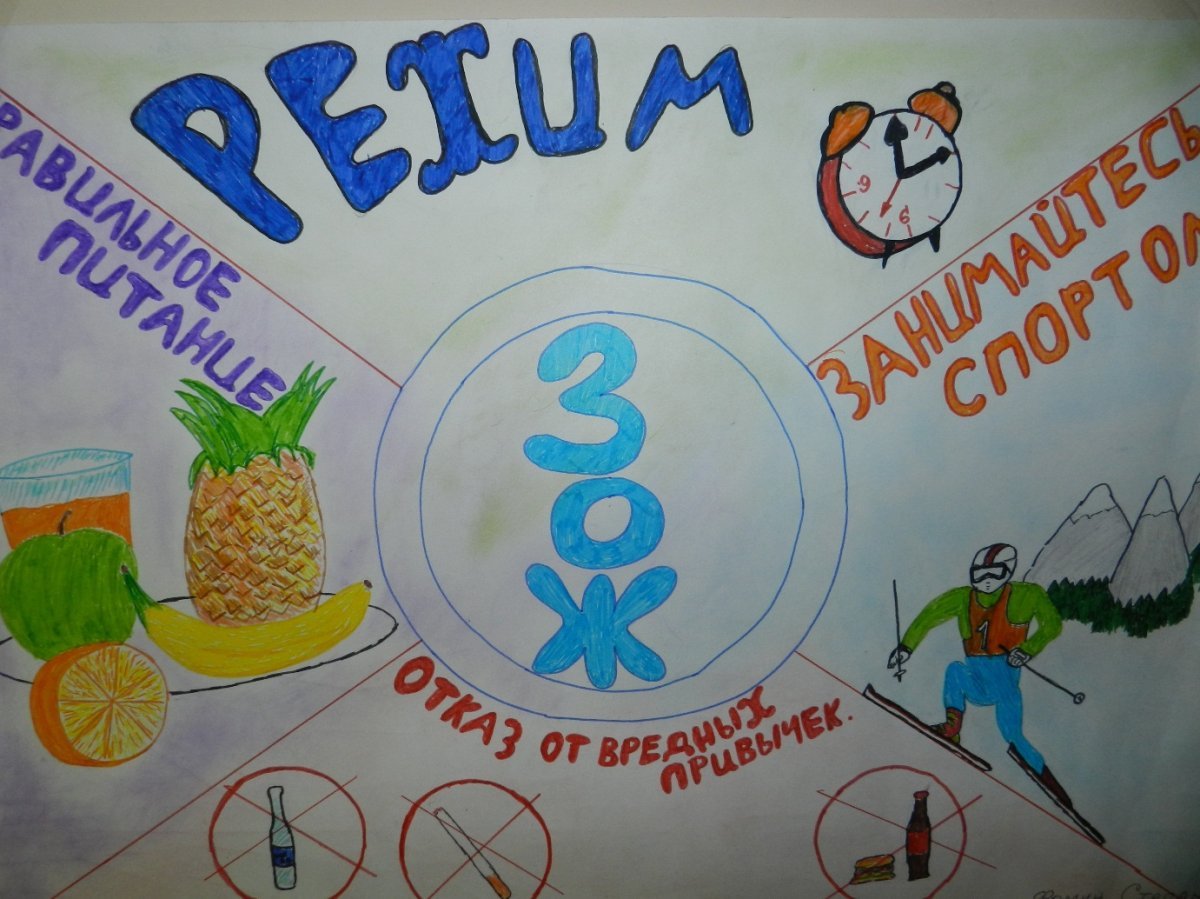 РЕЖИМ
РАВИЛЬНОЕ
ПИТАНИЕ
ЗАНИМАЙТЕСЬ
СПОРТОМ
9
6
З
О
Ж
1
ОТКАЗ ОТ ВРЕДНЫХ
ПРИВЫЧЕК.